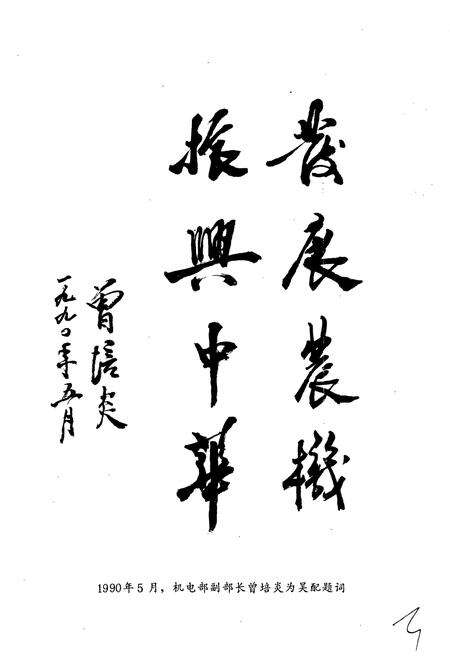 發展農機
振興中華
曾培炎
一九九〇年五月
1990年5月，机电部副部长曾培炎为吴配题词